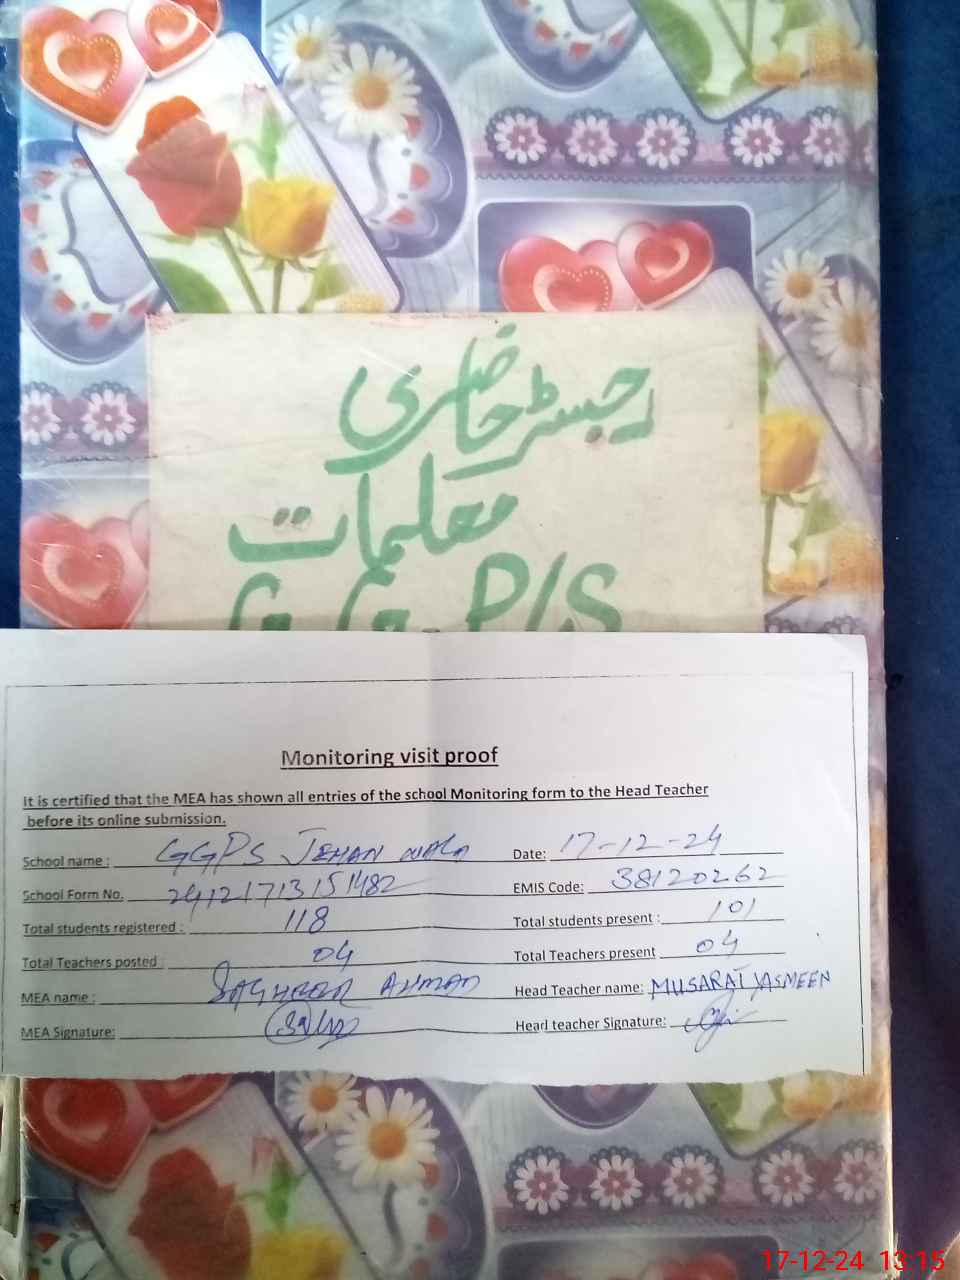 رجسٹر حاضری
معلمات
G.G.P/S
Monitoring visit proof
It is certified that the MEA has shown all entries of the school Monitoring form to the Head Teacher
before its online submission.
School name : GGPS JEHAN WALA Date: 17-12-24
School Form No. 24121713151482 EMIS Code: 38120262
Total students registered : 118 Total students present : 101
Total Teachers posted : 04 Total Teachers present 04
MEA name : SAGHEER AHMAD Head Teacher name: MUSARAT YASMEEN
MEA Signature: Head teacher Signature:
17-12-24 13:15